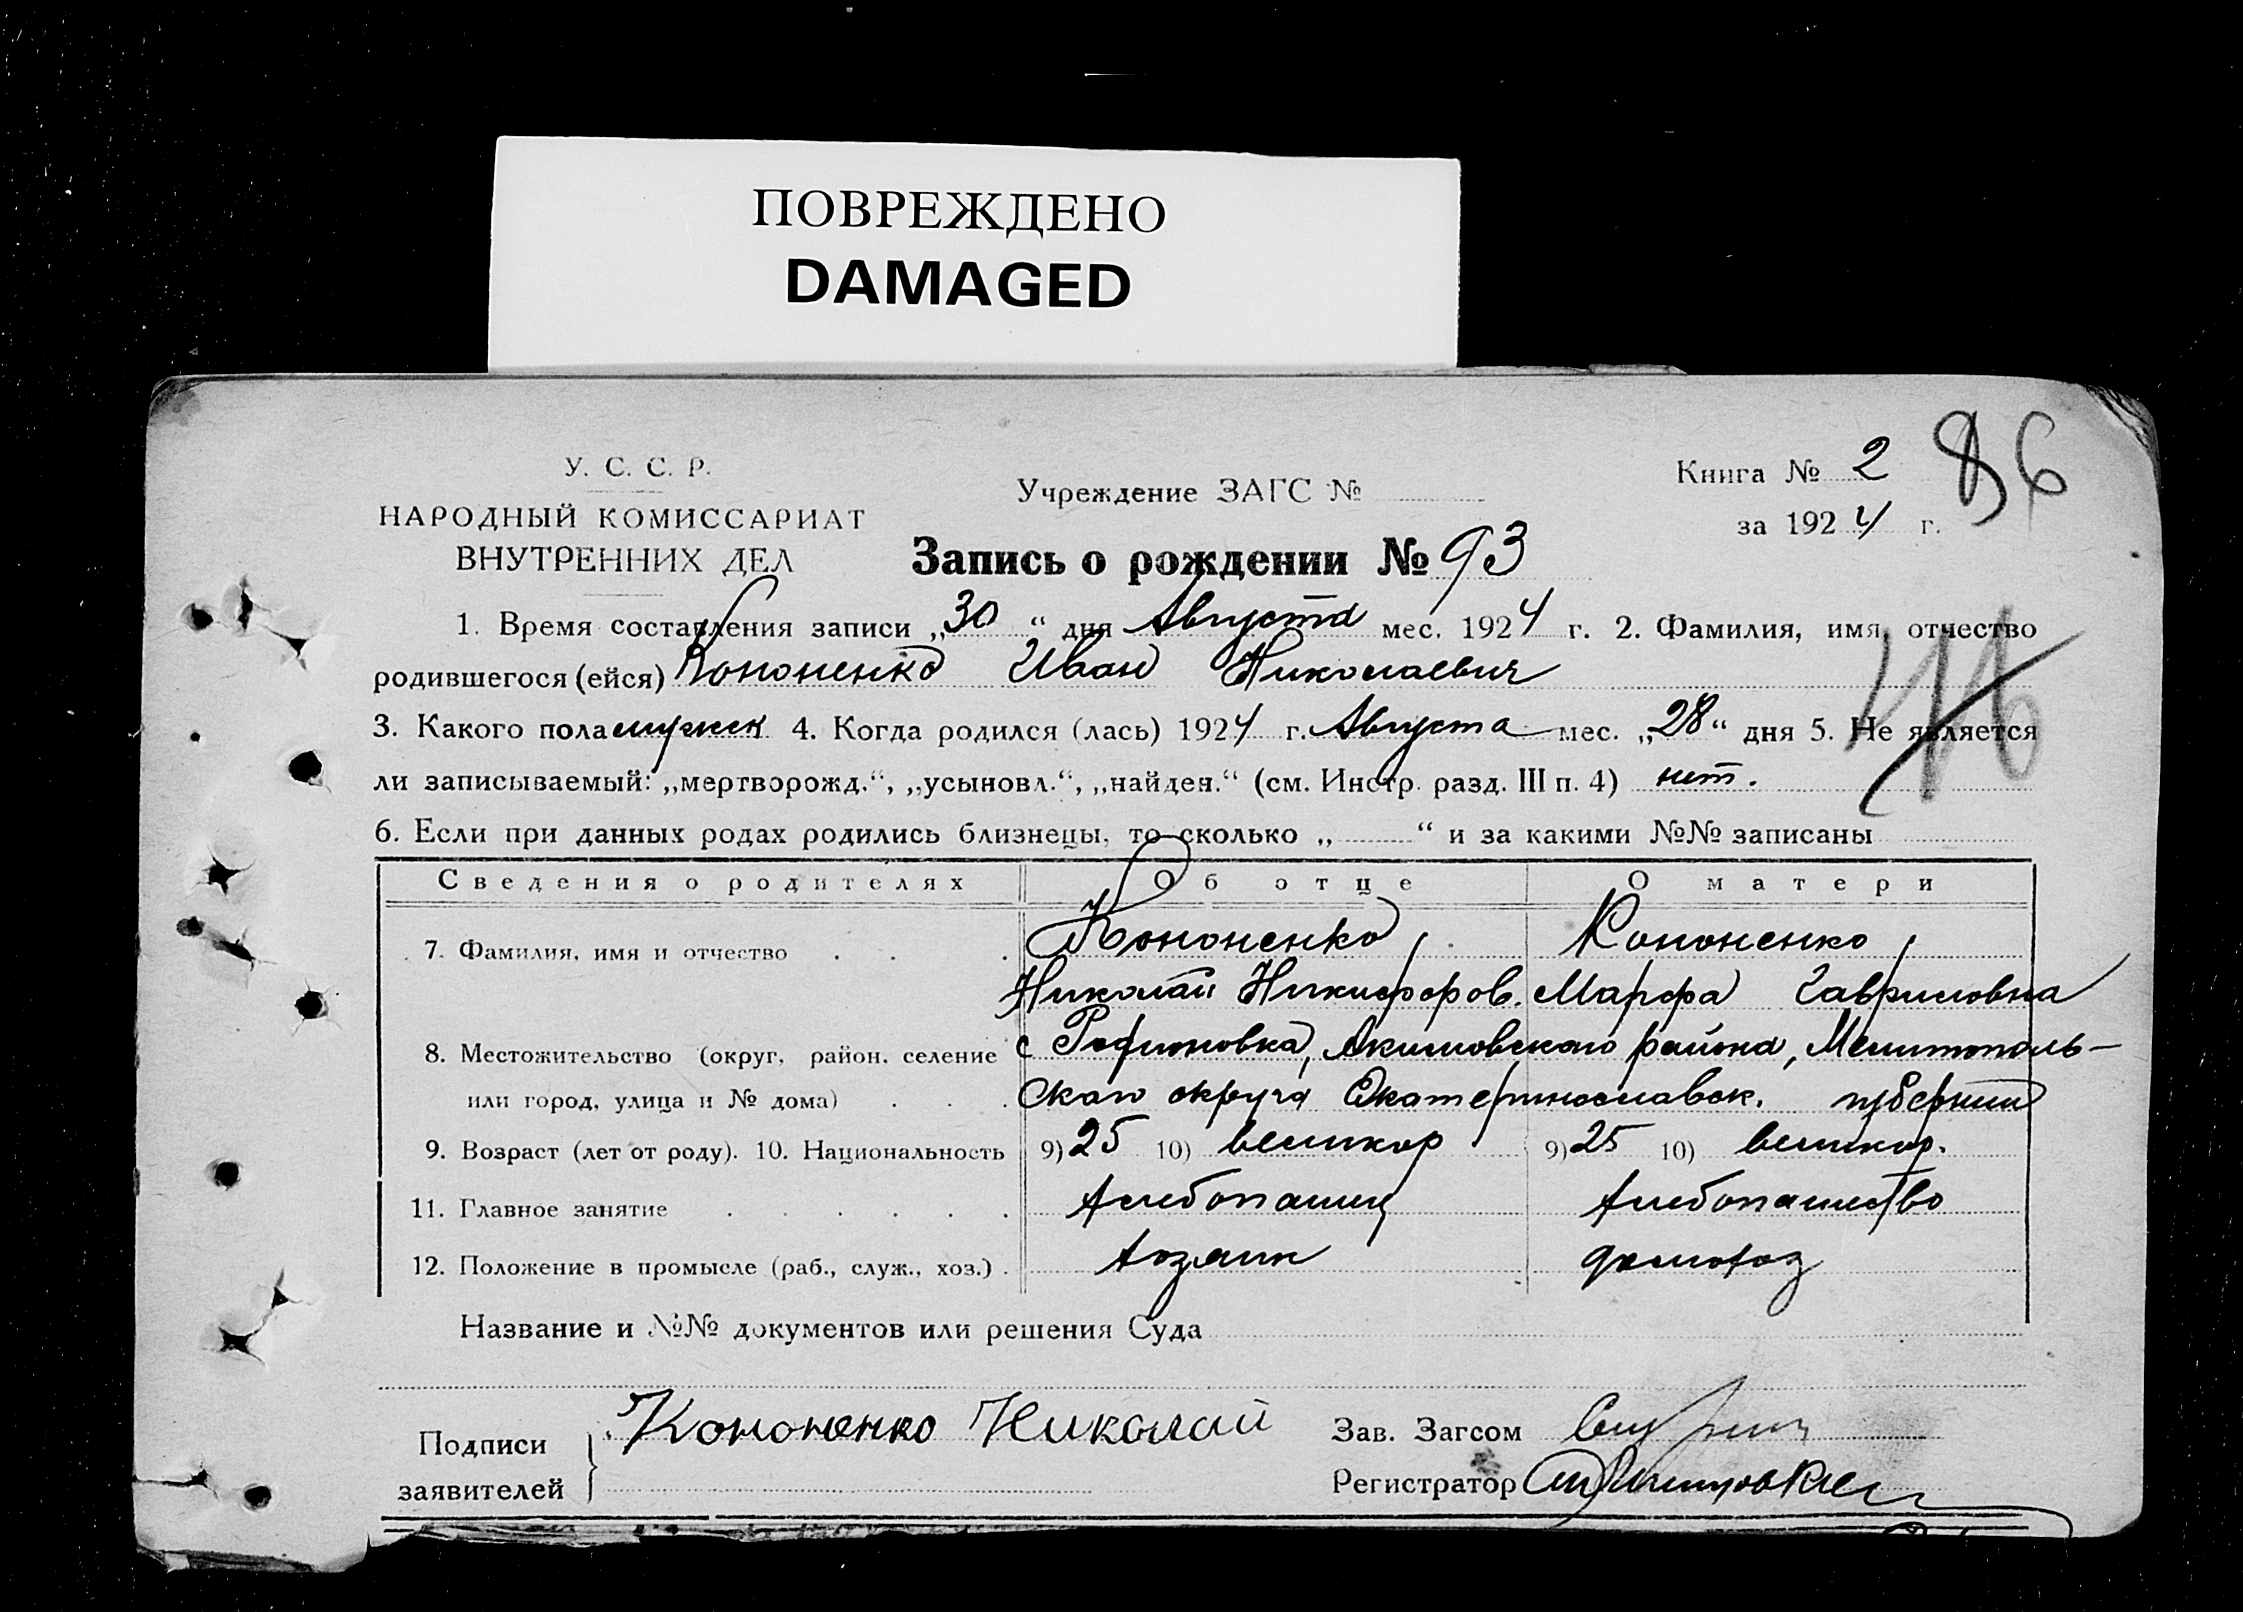 ПОВРЕЖДЕНО
DAMAGED
У. С. С. Р.
НАРОДНЫЙ КОМИССАРИАТ
ВНУТРЕННИХ ДЕЛ
Учреждение ЗАГС №
Книга № 2
86
за 1924 г.
Запись о рождении № 93
1. Время составления записи „30“ дня Августа мес. 1924 г. 2. Фамилия, имя, отчество
родившегося (ейся) Кононенко Иван Николаевич
3. Какого пола мужск 4. Когда родился (лась) 1924 г. Августа мес. „28“ дня 5. Не является
ли записываемый: „мертворожд.“, „усыновл.“, „найден.“ (см. Инстр. разд. III п. 4) нет.
6. Если при данных родах родились близнецы, то сколько „ “ и за какими №№ записаны
Сведения о родителях Об отце О матери
7. Фамилия, имя и отчество Кононенко, Кононенко,
Николай Никифоров. Марфа Гавриловна
8. Местожительство (округ, район, селение с Родионовка, Акимовского района, Мелитополь-
или город, улица и № дома) ского округа Екатеринославск. губернии
9. Возраст (лет от роду). 10. Национальность 9) 25 10) великор 9) 25 10) великор.
11. Главное занятие хлебопашец хлебопашество
12. Положение в промысле (раб., служ., хоз.) хозяин домохоз
Название и №№ документов или решения Суда
Подписи заявителей Кононенко Николай
Зав. Загсом
Регистратор